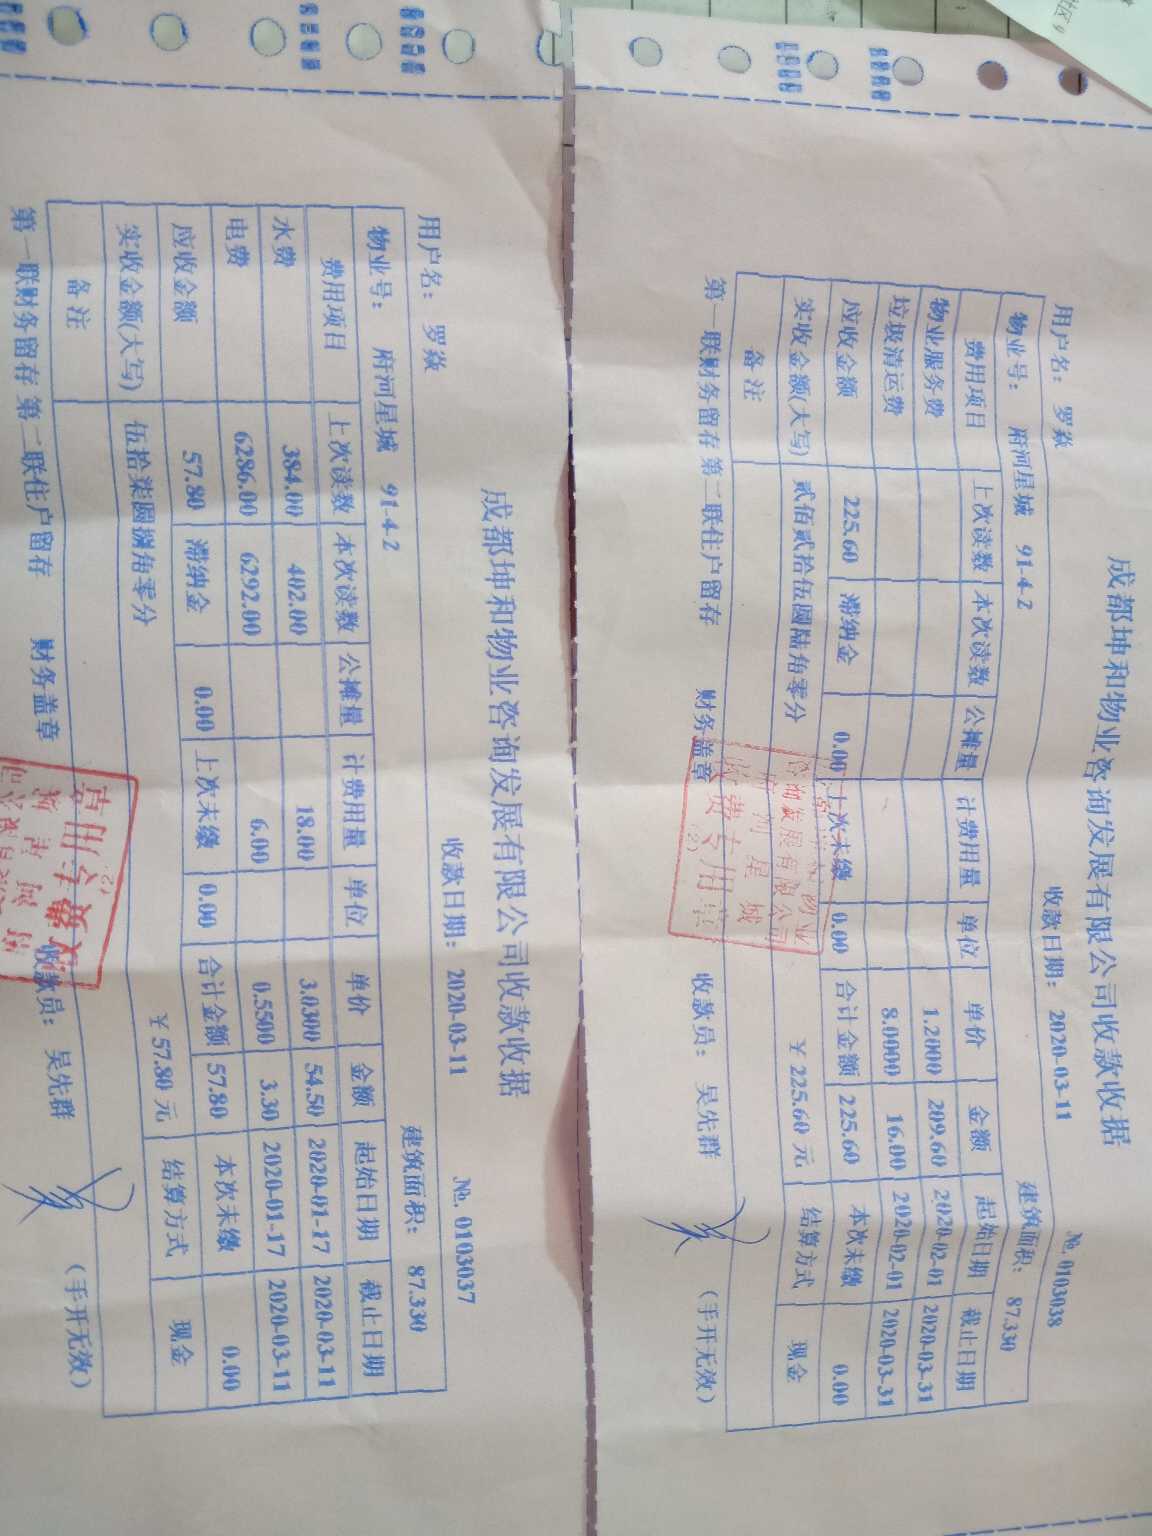 成都坤和物业咨询发展有限公司收款收据
收款日期： 2020-03-11 №. 0103038
用户名： 罗燚
物业号： 府河星城 91-4-2 建筑面积： 87.330
费用项目 上次读数 本次读数 公摊量 计费用量 单位 单价 金额 起始日期 截止日期
物业服务费 1.2000 209.60 2020-02-01 2020-03-31
垃圾清运费 8.0000 16.00 2020-02-01 2020-03-31
应收金额 225.60 滞纳金 0.00 上次未缴 0.00 合计金额 225.60 本次未缴 0.00
实收金额(大写) 贰佰贰拾伍圆陆角零分 ￥ 225.60 元 结算方式 现金
备注
第一联财务留存 第二联住户留存 财务盖章 收款员： 吴先群 （手开无效）
物业
咨询发展有限公司
府河星城
收费专用章
成都坤和物业咨询发展有限公司收款收据
收款日期： 2020-03-11 №. 0103037
用户名： 罗燚
物业号： 府河星城 91-4-2 建筑面积： 87.330
费用项目 上次读数 本次读数 公摊量 计费用量 单位 单价 金额 起始日期 截止日期
水费 384.00 402.00 18.00 3.0300 54.50 2020-01-17 2020-03-11
电费 6286.00 6292.00 6.00 0.5500 3.30 2020-01-17 2020-03-11
应收金额 57.80 滞纳金 0.00 上次未缴 0.00 合计金额 57.80 本次未缴 0.00
实收金额(大写) 伍拾柒圆捌角零分 ￥ 57.80 元 结算方式 现金
备注
第一联财务留存 第二联住户留存 财务盖章 收款员： 吴先群 （手开无效）